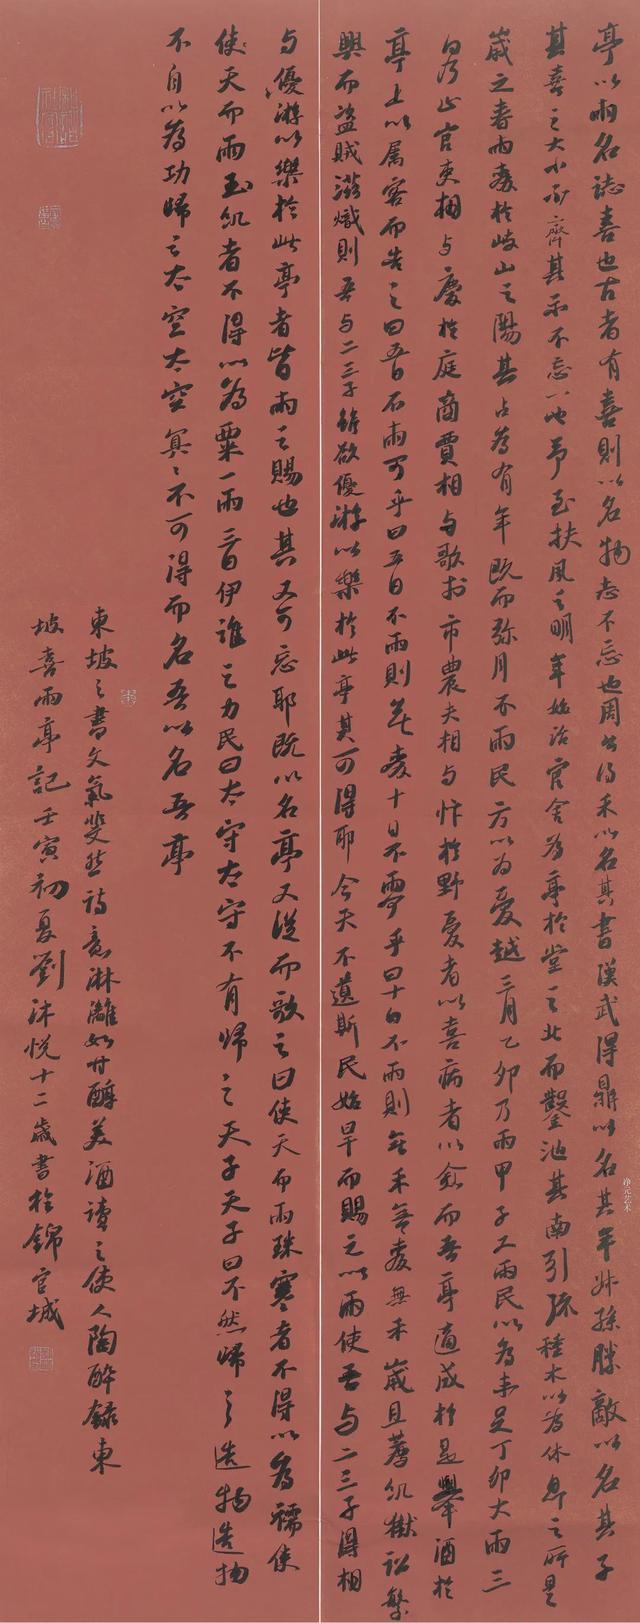 亭以雨名誌喜也古者有喜則以名物志不忘也周公得禾以名其書漢武得鼎以名其年叔孫勝敵以名其子
其喜之大小不齊其示不忘一也予至扶風之明年始治官舍為亭於堂之北而鑿池其南引流種木以為休息之所是
歲之春雨麥於岐山之陽其占為有年既而彌月不雨民方以為憂越三月乙卯乃雨甲子又雨民以為未足丁卯大雨三
日乃止官吏相與慶於庭商賈相與歌於市農夫相與忭於野憂者以喜病者以愈而吾亭適成於是舉酒於
亭上以屬客而告之曰五日不雨可乎曰五日不雨則無麥十日不雨可乎曰十日不雨則無禾無麥無禾歲且薦飢獄訟繁
興而盜賊滋熾則吾與二三子雖欲優游以樂於此亭其可得耶今天不遺斯民始旱而賜之以雨使吾與二三子得相
与優游以樂於此亭者皆雨之賜也其又可忘耶既以名亭又從而歌之曰使天而雨珠寒者不得以為襦使
使天而雨玉飢者不得以為粟一雨三日伊誰之力民曰太守太守不有歸之天子天子曰不然歸之造物造物
不自以為功歸之太空太空冥冥不可得而名吾以名吾亭
東坡之書文氣斐然詩意淋漓如甘醇美酒讀之使人陶醉錄東
坡喜雨亭記壬寅初夏劉沐悅十二歲書於錦官城
净元艺术